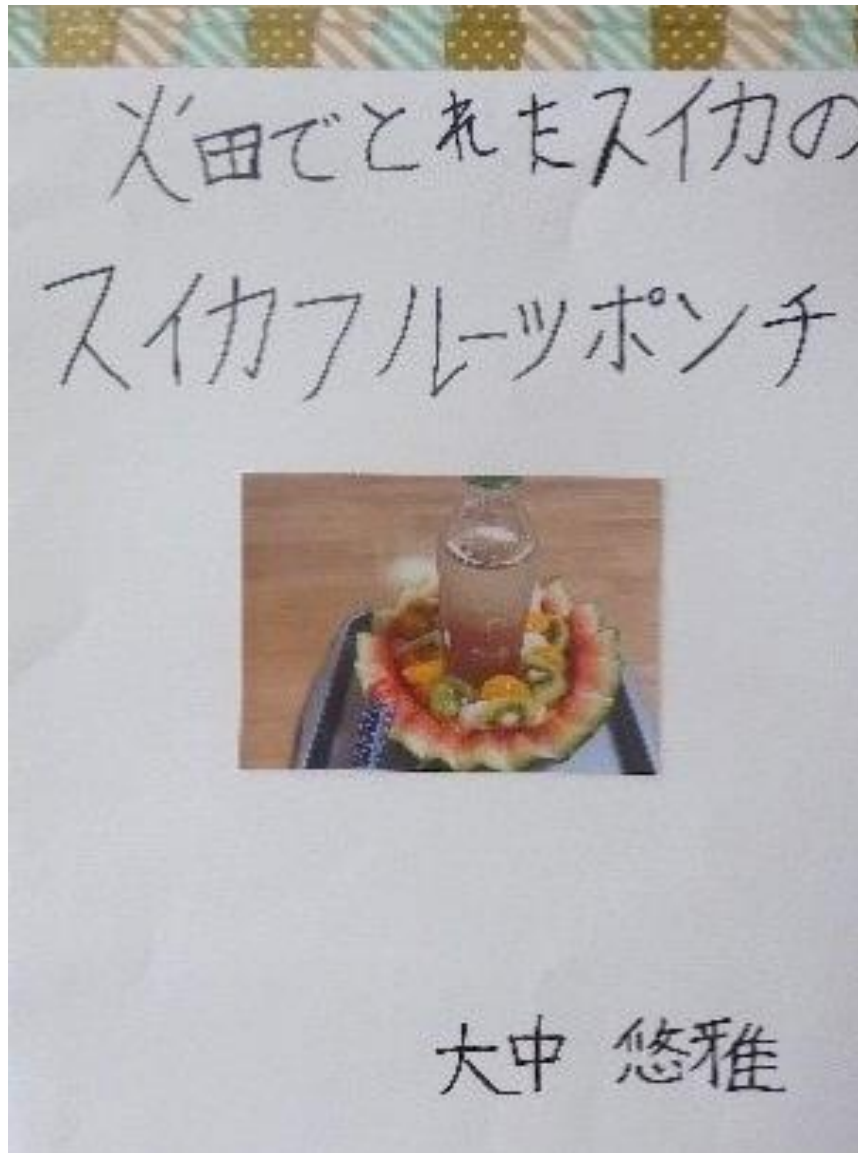 畑でとれたスイカの
スイカフルーツポンチ
大中 悠雅